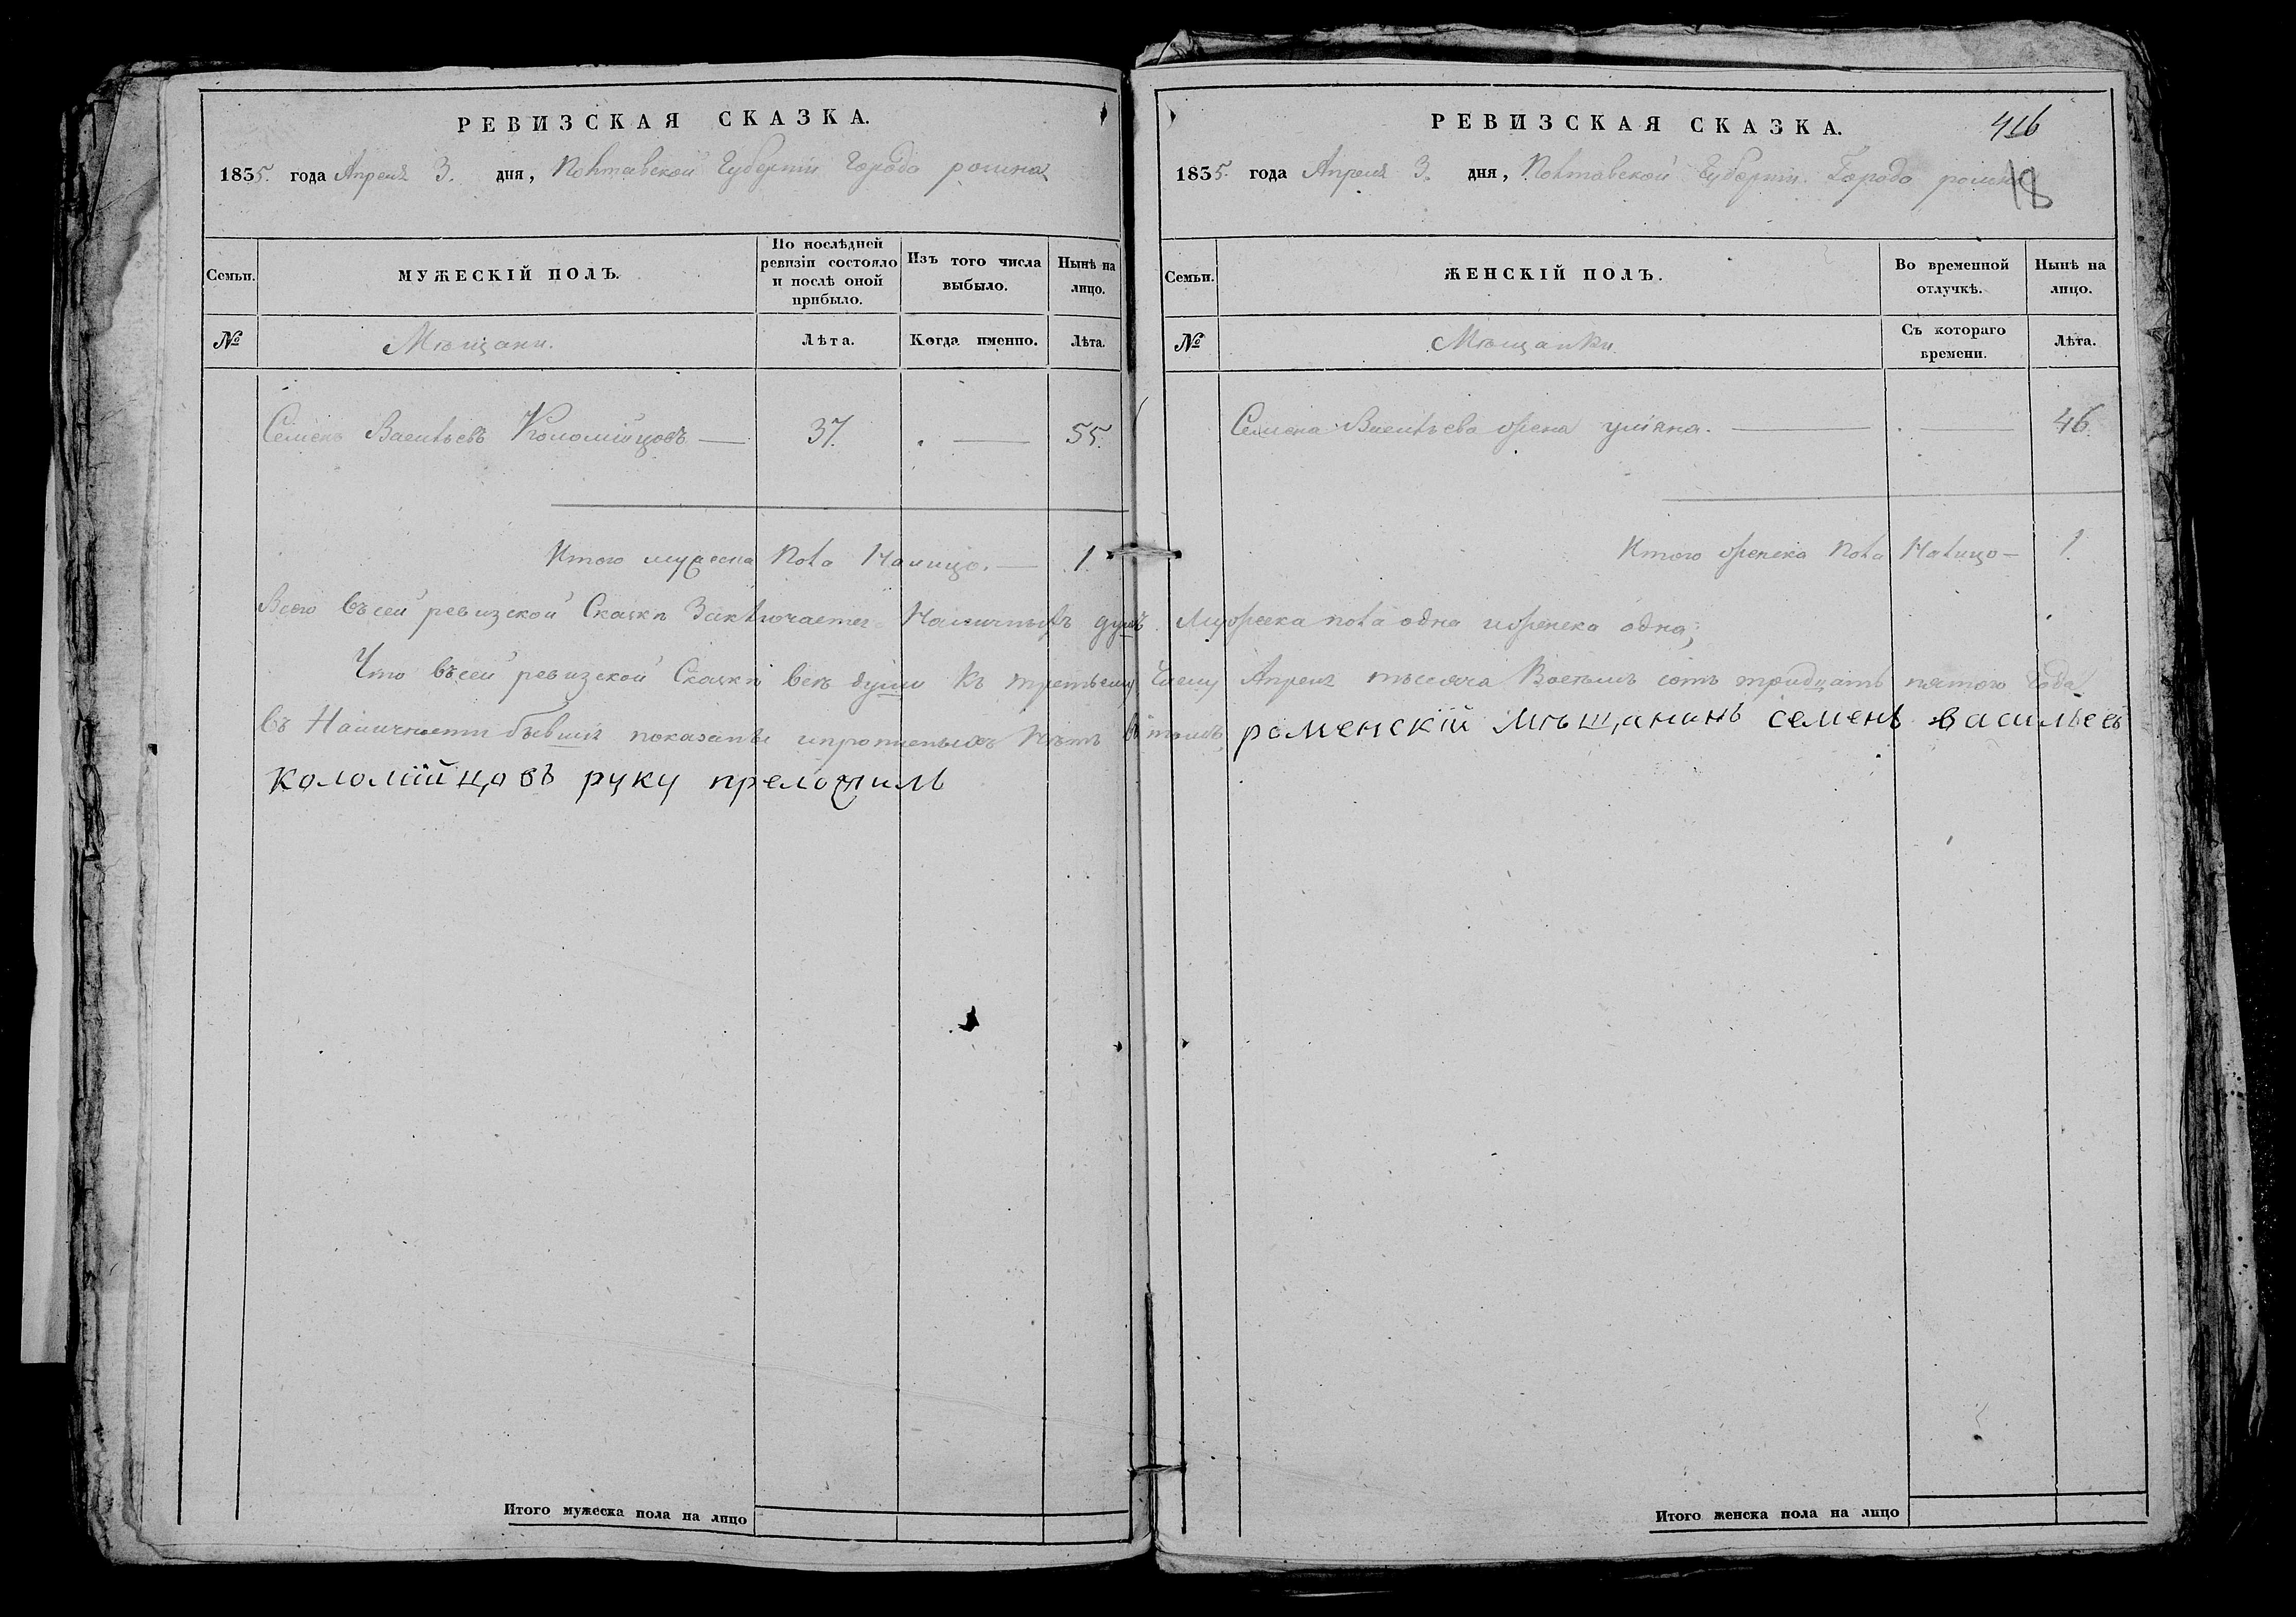 РЕВИЗСКАЯ СКАЗКА.
1835. года Апреля 3. дня, Полтавской Губернїи Города ромна
Семьи.
МУЖЕСКІЙ ПОЛЪ.
По послѣдней ревизіи состояло и послѣ оной прибыло.
Изъ того числа выбыло.
Нынѣ на лицо.
№
Мѣщани.
Лѣта.
Когда именно.
Лѣта.
Семенъ Васильевъ Коломійцовъ — 37. . — 55.
Итого мужеска пола Налицо. — 1.
Итого мужеска пола на лицо
РЕВИЗСКАЯ СКАЗКА.
416
18
1835. года Апреля 3. дня, Полтавской Губернїи Города ромна
Семьи.
ЖЕНСКІЙ ПОЛЪ.
Во временной отлучкѣ.
Нынѣ на лицо.
№
Мѣщанки
Съ котораго времени.
Лѣта.
Семена Васильева жена уліяна. — . — 46.
Итого женска пола Налицо — 1.
Всего въсей ревизской Скаски Заключается Наличныхъ душъ Мужеска пола одна иженска одна;
Что въсей ревизской Скаски всѣ души къ третьему числу Апреля тысяча Восемъ сотъ тридцать пятого года
въ Наличности бывшія показаны ипрописныхъ нѣтъ втомъ, роменскїй мѣщанинъ семенъ васильевъ
коломїйцовъ руку преложилъ
Итого женска пола на лицо